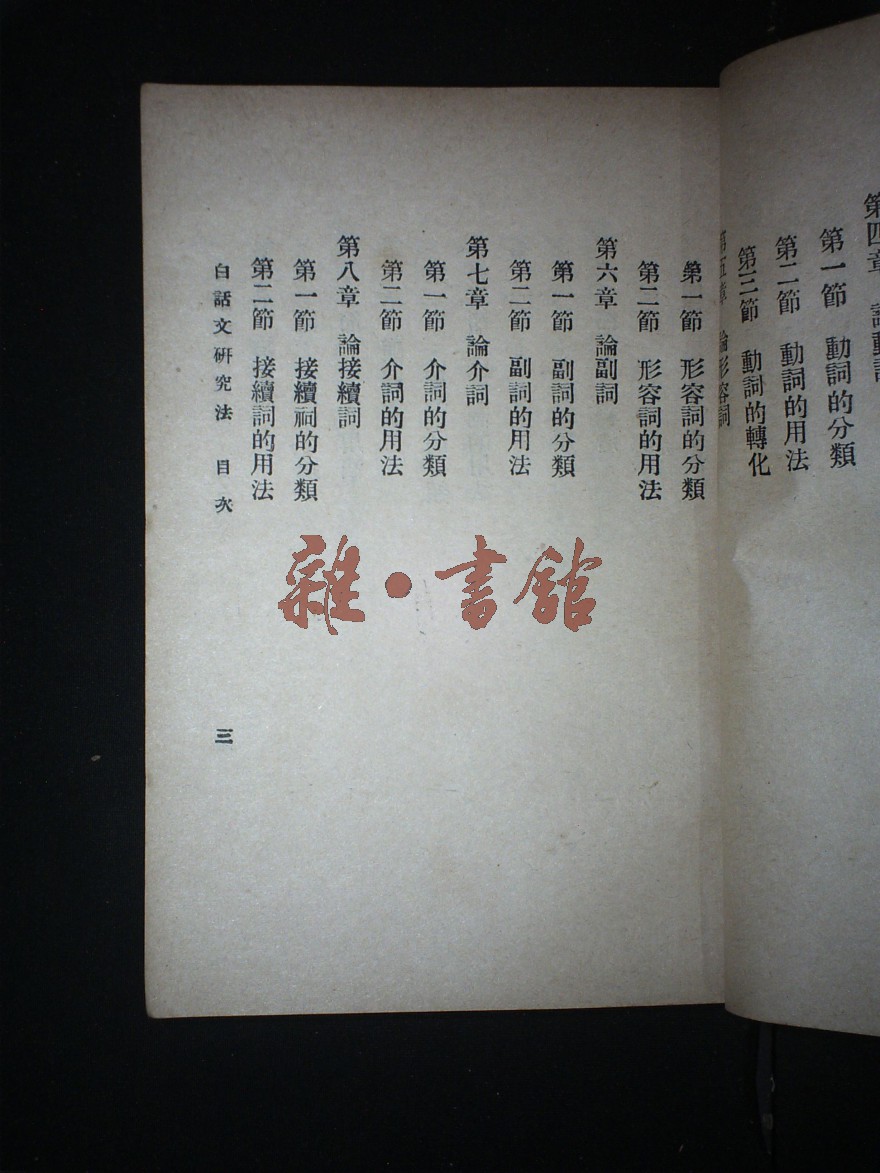 第四章 論動詞
第一節 動詞的分類
第二節 動詞的用法
第三節 動詞的轉化
第五章 論形容詞
第一節 形容詞的分類
第二節 形容詞的用法
第六章 論副詞
第一節 副詞的分類
第二節 副詞的用法
第七章 論介詞
第一節 介詞的分類
第二節 介詞的用法
第八章 論接續詞
第一節 接續祠的分類
第二節 接續詞的用法
白話文研究法 目次
三
雜·書館